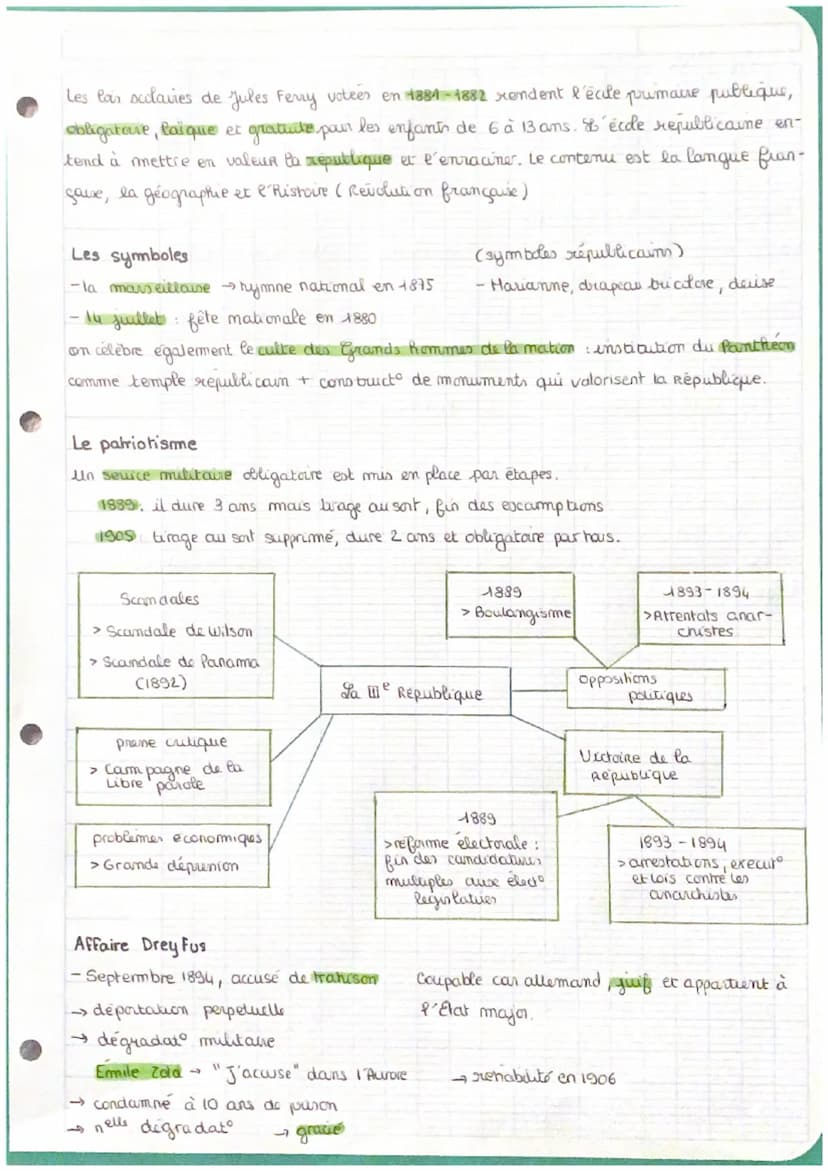 Les lois scolaires de Jules Ferry votées en 1881-1882 rendent l'école primaire publique,
obligatoire, laïque et gratuite pour les enfants de 6 à 13 ans. L'école républicaine en-
tend à mettre en valeur la république et l'enraciner. Le contenu est la langue fran-
çaise, la géographie et l'histoire (Révolution française)
Les symboles
(symboles républicains)
-la marseillaise → hymne national en 1875
- Marianne, drapeau tricolore, devise
- 14 juillet : fête nationale en 1880
on célèbre également le culte des Grands hommes de la nation : institution du Panthéon
comme temple républicain + construct° de monuments qui valorisent la République.
Le patriotisme
Un service militaire obligatoire est mis en place par étapes.
1889: il dure 3 ans mais tirage au sort, fin des excamptions
1905 tirage au sort supprimé, dure 2 ans et obligatoire par tous.
Scandales
> Scandale de Wilson
> Scandale de Panama
(1892)
1889
> Boulangisme
1893-1894
>Attentats anar-
chistes
La IIIe République
oppositions
politiques
presse critique
> Campagne de la
Libre parole
Victoire de la
République
problèmes économiques
> Grande dépression
1889
>réforme électorale :
fin des candidatures
multiples aux élect°
législatives
1893 - 1894
> arrestations, execut°
et lois contre les
anarchistes
Affaire Dreyfus
- Septembre 1894, accusé de trahison
Coupable car allemand, juif et appartient à
l'État major.
→ déportation perpetuelle
→ dégradat° militaire
Emile Zola → "J'accuse" dans l'Aurore
→ rehabilité en 1906
→ condamné à 10 ans de prison
→ nelle dégradat°
→ gracié